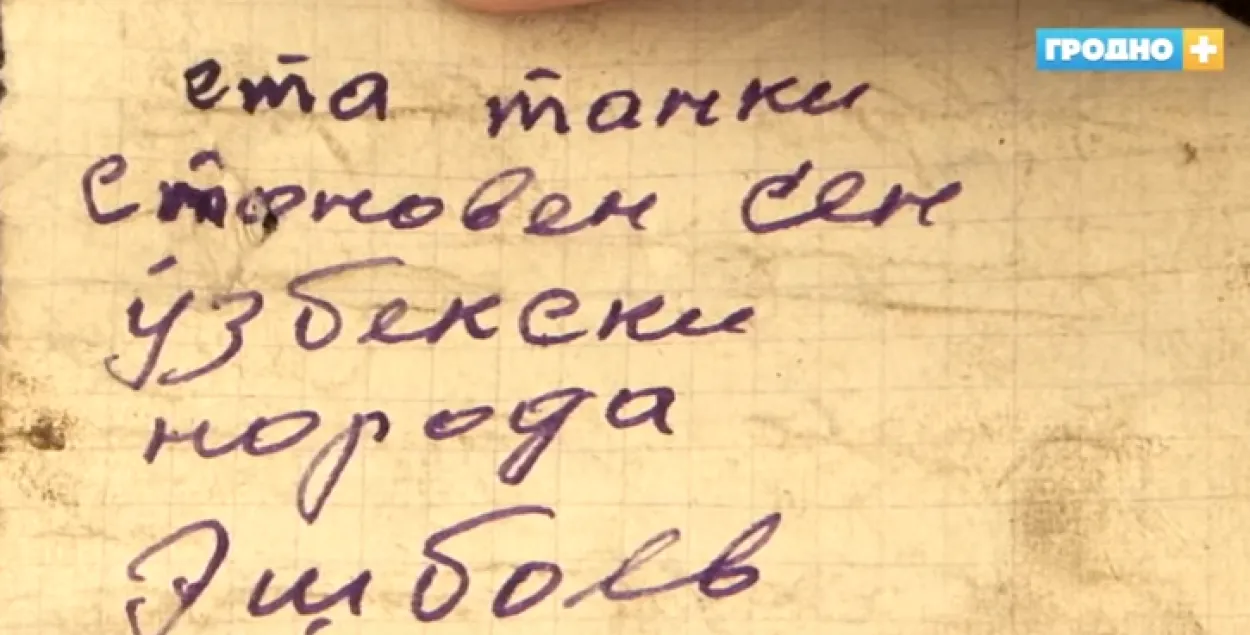 ГРОДНО +
ета танки
становен сен
узбекски
норода
Эшбоев